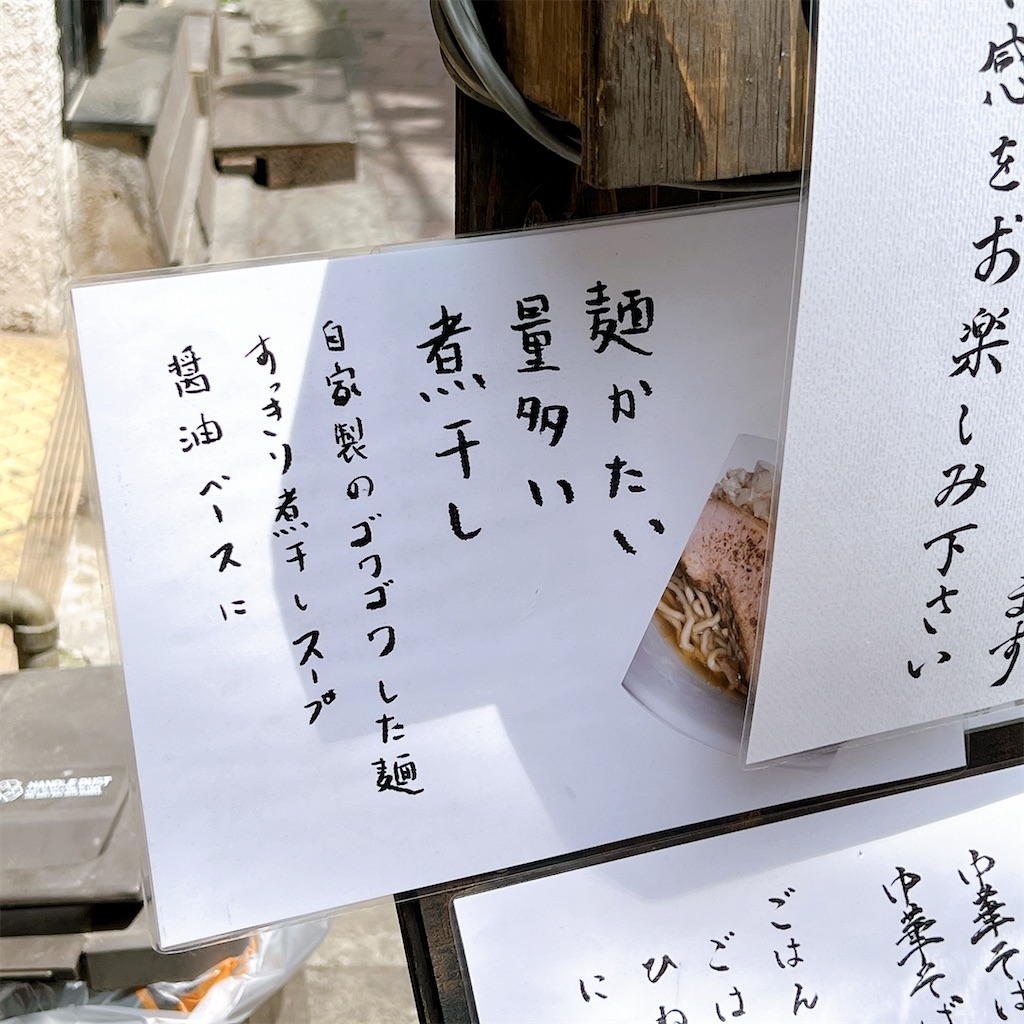 感をお楽しみ下さい
ます
麺かたい
量多い
煮干し
自家製のゴワゴワした麺
すっきり煮干しスープ
醤油ベースに
中華そば
中華そば
ごはん
ごは
ひね
に
HANDLE DUST